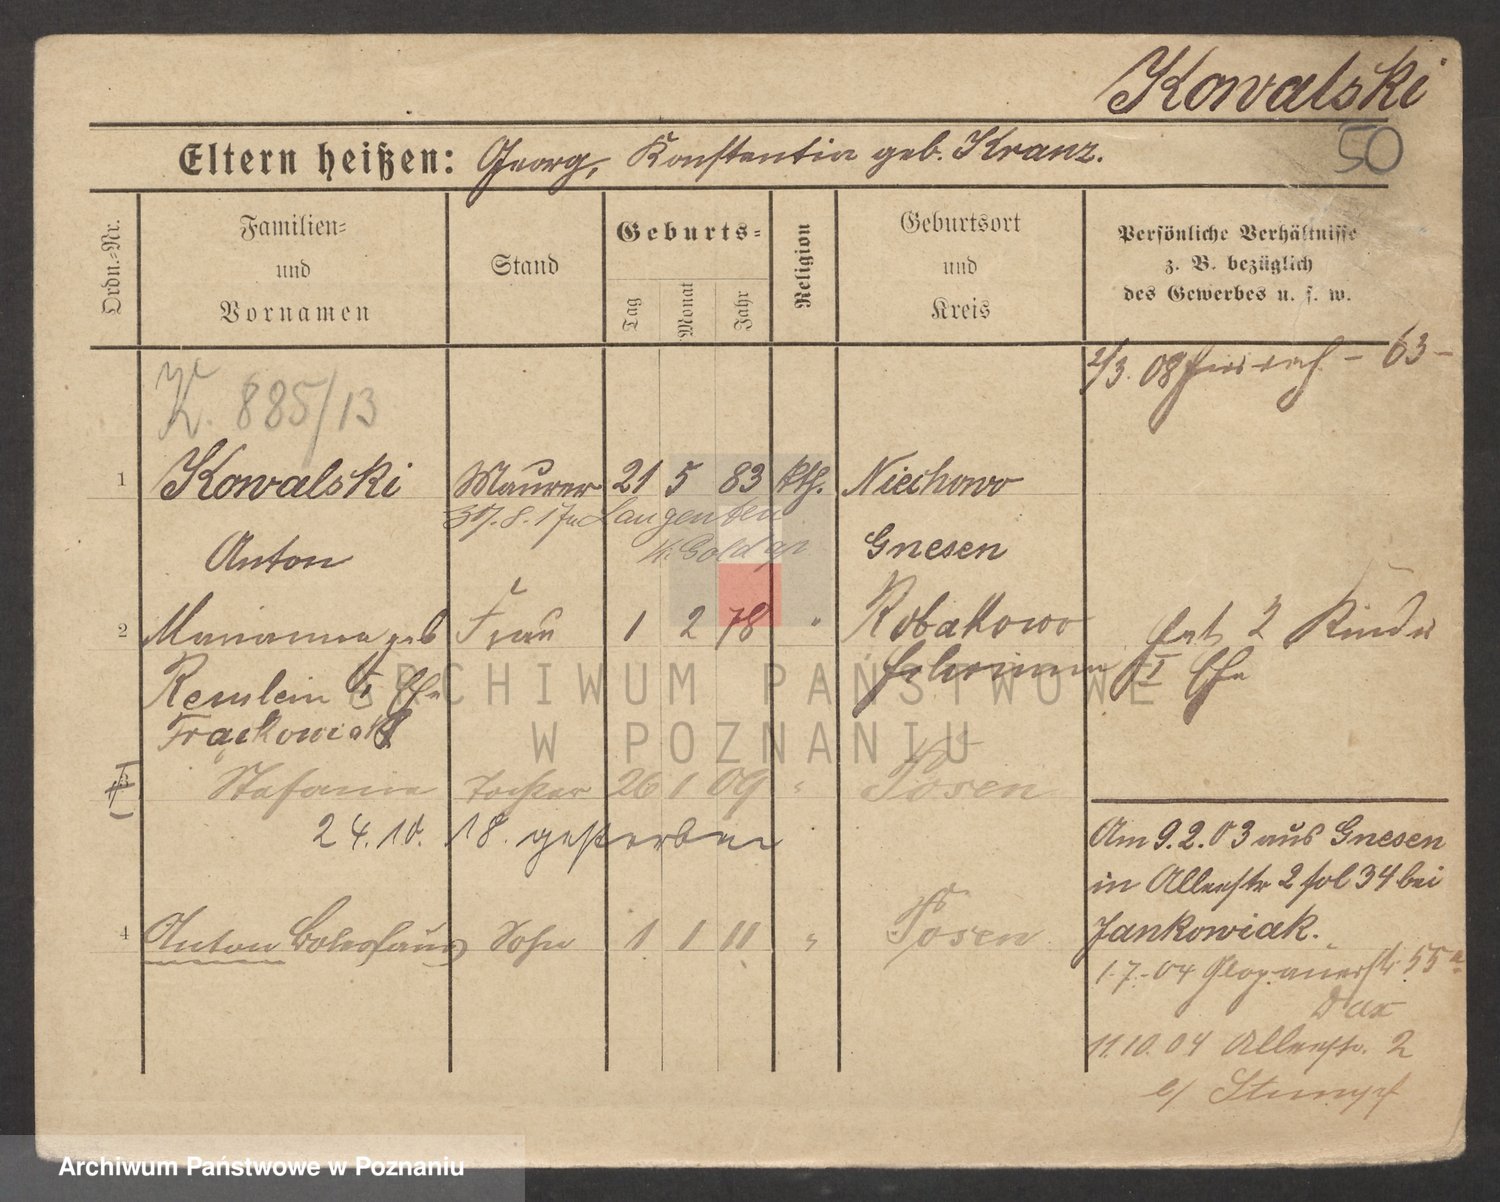 Kowalski
50
Eltern heißen: Georg, Konstantia geb. Kranz.
Ordn.-Nr.
Familien-
und
Vornamen
Stand
Geburts-
Tag
Monat
Jahr
Religion
Geburtsort
und
Kreis
Persönliche Verhältnisse
z. B. bezüglich
des Gewerbes u. s. w.
2/3. 08 - 63 -
K. 885/13
1 Kowalski Maurer 21 5 83 kth. Niechowo
Langen
K. Goldap
Anton Gnesen
2 Marianna geb Frau 1 2 78 " Robakowo hat 2 Kinder
Remlein I Ehe I Ehe
Frąckowiak
3 Stefania Tochter 26 1 09 " Posen
24. 10. 18. gestorben
Am 9.2.03 aus Gnesen
in Allerstr 2 fol 34 bei
4 Anton Boleslaus Sohn 1 1 11 " Posen
Jankowiak.
1.7.-04 Glogauerstr 55a
Dax
11.10.04 Allerstr. 2
b/ Stumpf
ARCHIWUM PAŃSTWOWE
W POZNANIU
Archiwum Państwowe w Poznaniu